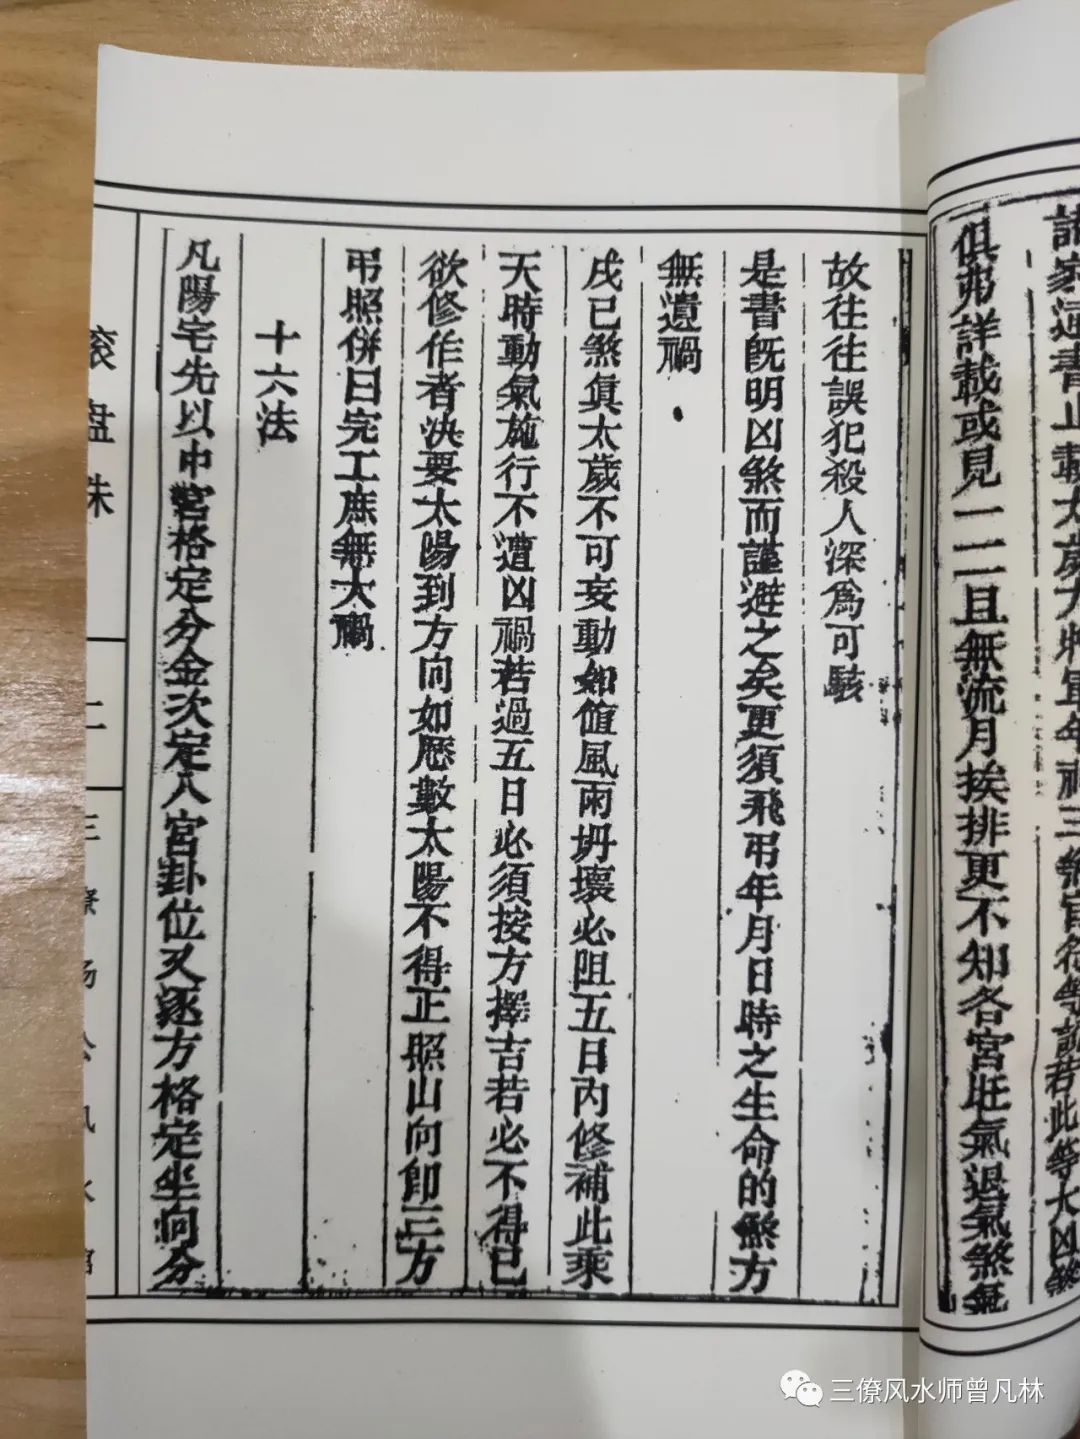 諸家通書止載太歲大將軍年禁三煞官符等說若此等大凶煞
俱弗詳載或見一二且無流月挨排更不知各宮旺氣退氣煞氣
故往往誤犯殺人深為可駭
是書既明凶煞而謹避之矣更須飛弔年月日時之生命的煞方
無遺禍
戌已煞眞太歲不可妄動如値風雨坍壞必阻五日內修補此乘
天時動氣施行不遭凶禍若過五日必須按方擇吉若必不得已
欲修作者決要太陽到方向如歷數太陽不得正照山向卽三方
弔照併日完工庶無大禍
十六法
凡陽宅先以中宮格定分金次定八宮卦位又逐方格定坐向分
滾盤珠
二
三僚杨公风水馆
三僚风水师曾凡林